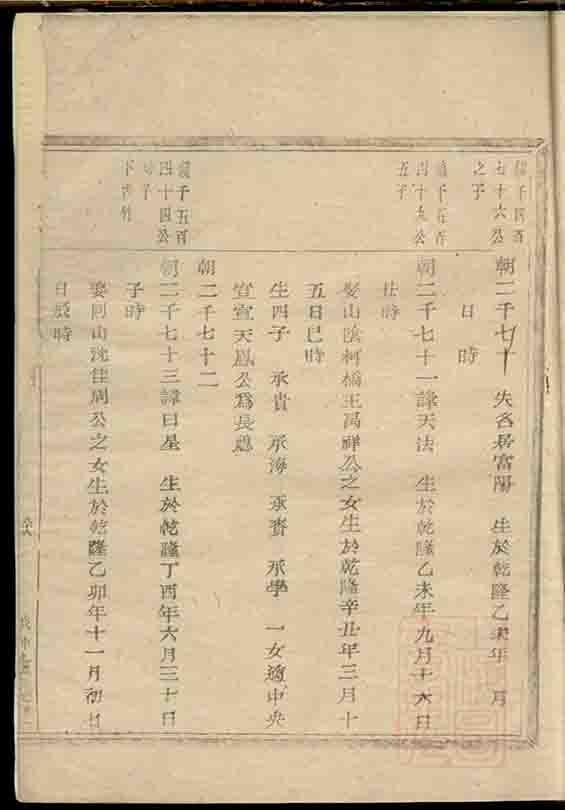 千四百
七十六公
之子
朝二千七十 失名居富陽 生於乾隆乙未年 月
日 時
千五百
四十九公
五子
朝二千七十一諱天法 生於乾隆乙未年九月十六日
時
娶山陰柯橋王禹祥公之女生於乾隆辛丑年三月十
五日巳時
生四子 承貴 承海 承賚 承學 一女適中央
宣宣天鳳公爲長媳
朝二千七十二
千五百
四十四公
子
朝二千七十三諱曰星 生於乾隆丁酉年六月三十日
子時
娶同山沈佳周公之女生於乾隆乙卯年十一月初 日
日辰時